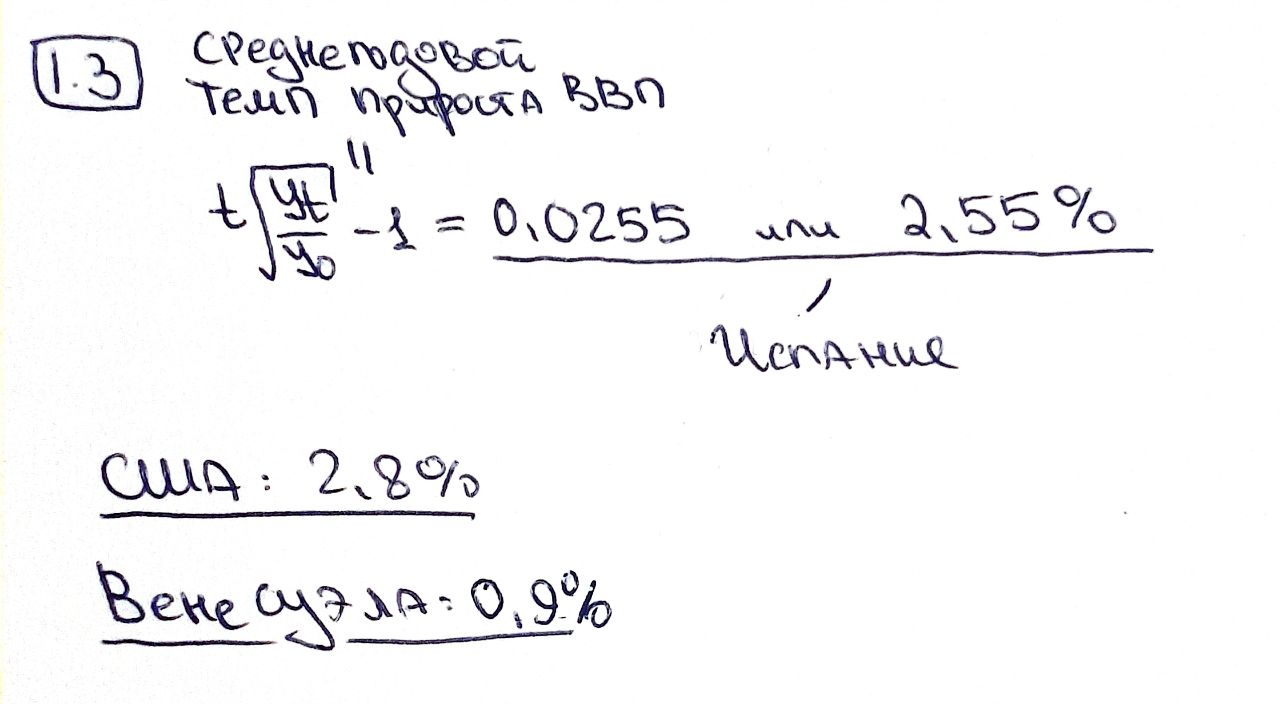 1.3 Среднегодовой
темп прироста ВВП
"
t√(yt/y0) - 1 = 0,0255 или 2,55%
Испание
США: 2,8%
Венесуэла: 0,9%